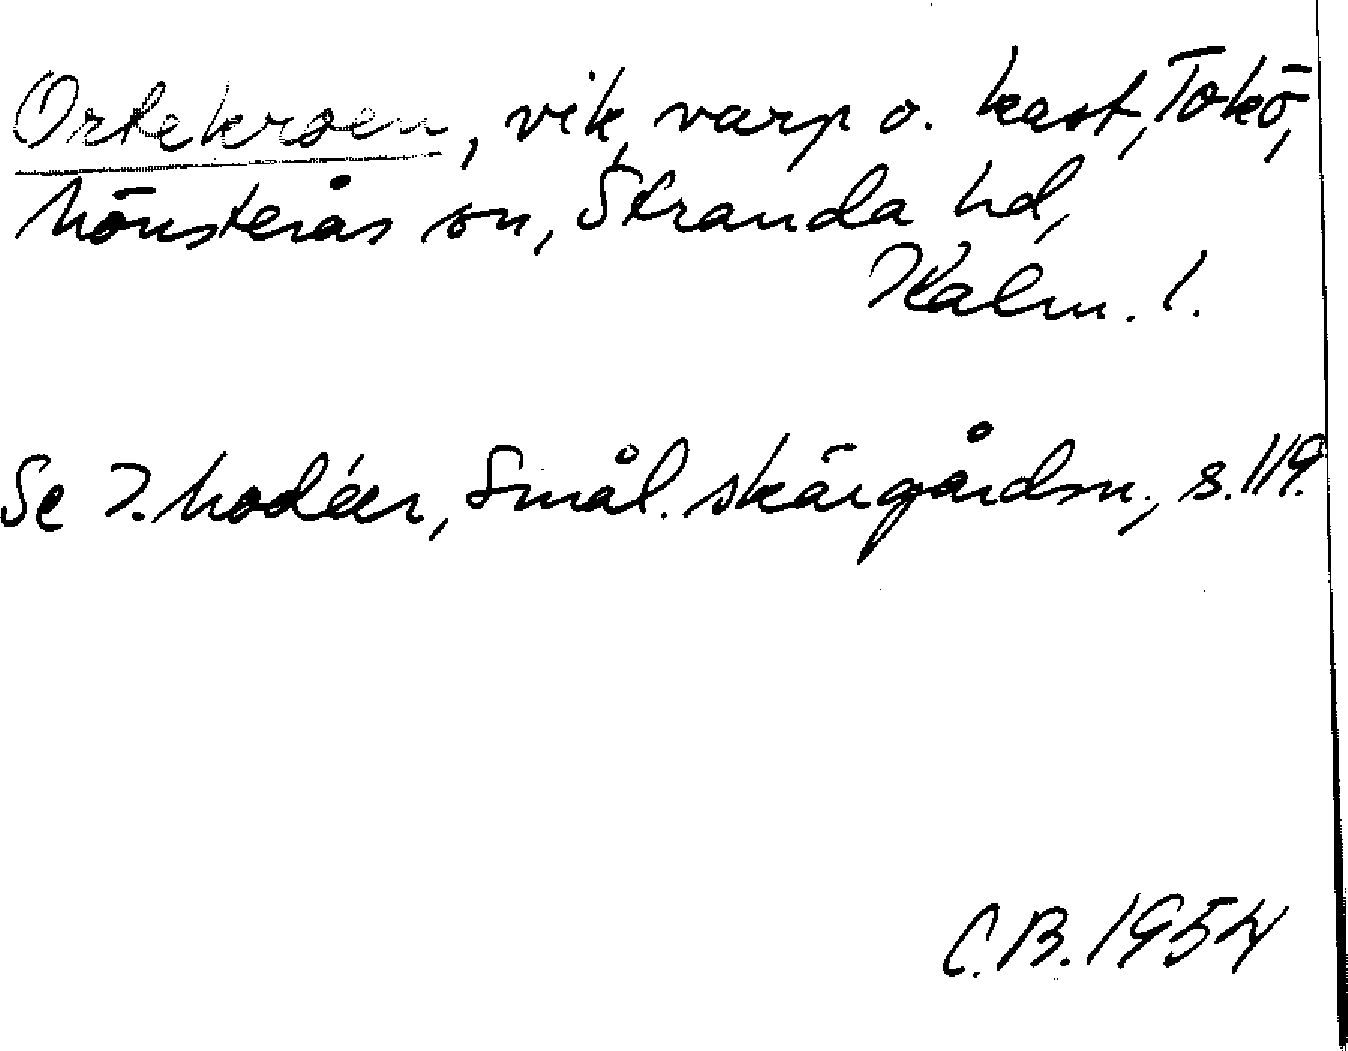 Ortekroen, vik, varp o. kast, Tokö,
Mönsterås sn, Stranda hd,
Kalm. l.
Se I. Modéer, Smål. skärgårdsn., s. 119.
C.B. 1954